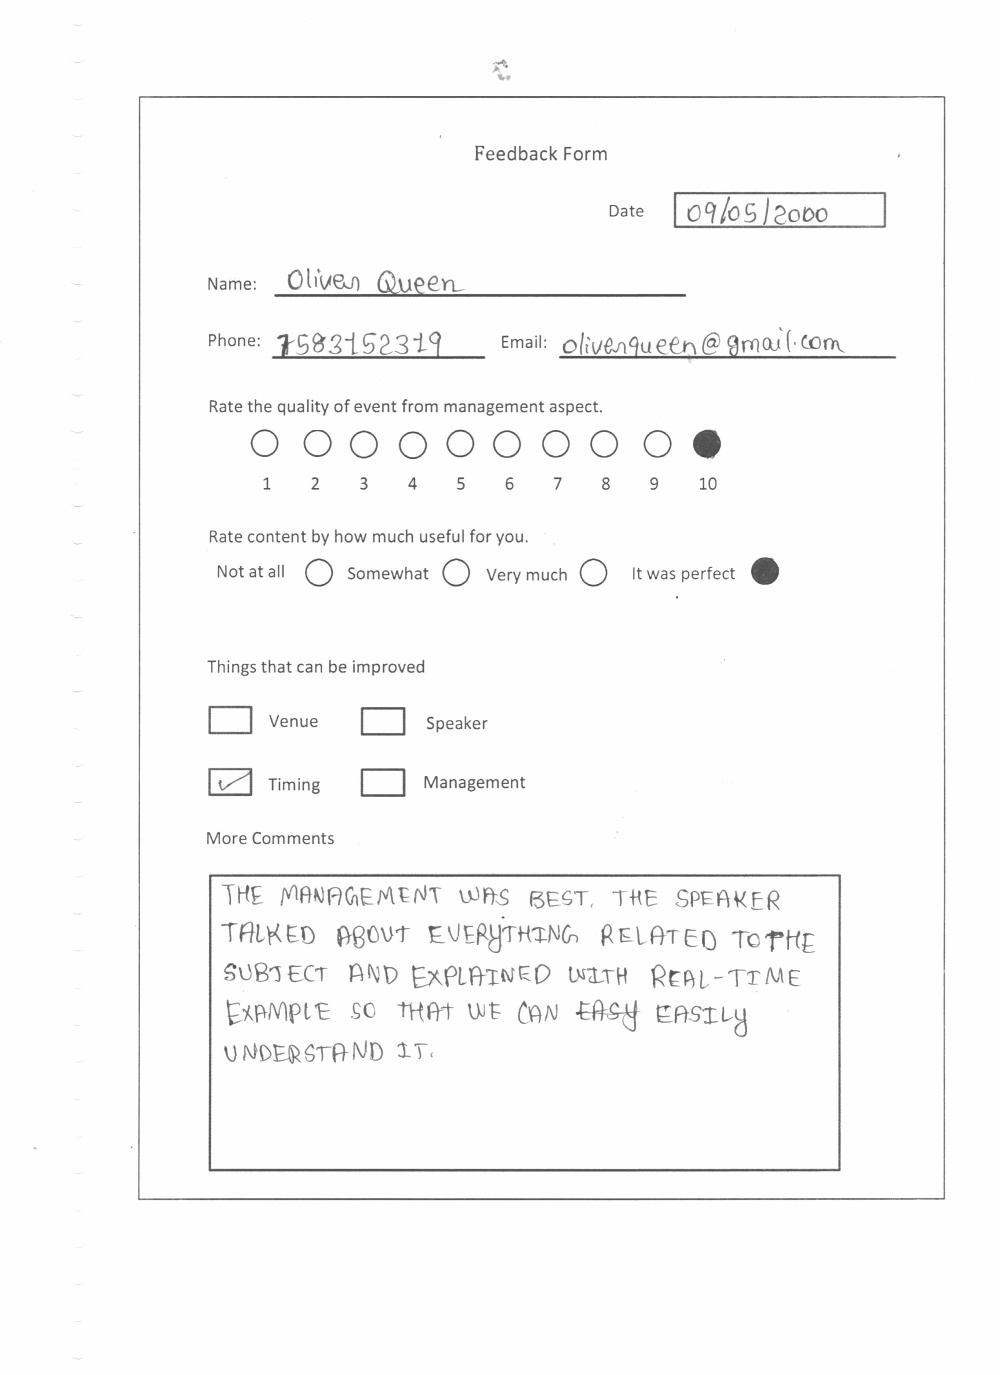 Feedback Form
Date 09/05/2000
Name: Oliver Queen
Phone: 7583152319 Email: oliverqueen@gmail.com
Rate the quality of event from management aspect.
1 2 3 4 5 6 7 8 9 10
Rate content by how much useful for you.
Not at all Somewhat Very much It was perfect
Things that can be improved
Venue Speaker
Timing Management
More Comments
THE MANAGEMENT WAS BEST. THE SPEAKER
TALKED ABOUT EVERYTHING RELATED TO THE
SUBJECT AND EXPLAINED WITH REAL-TIME
EXAMPLE SO THAT WE CAN EASY EASILY
UNDERSTAND IT.